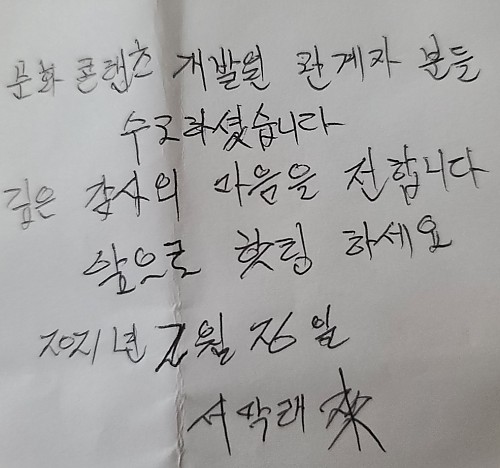 문화 콘텐츠 개발원 관계자 분들
수고하셨습니다
깊은 감사의 마음을 전합니다
앞으로 홧팅 하세요
2021년 2월 26일
서작래 來